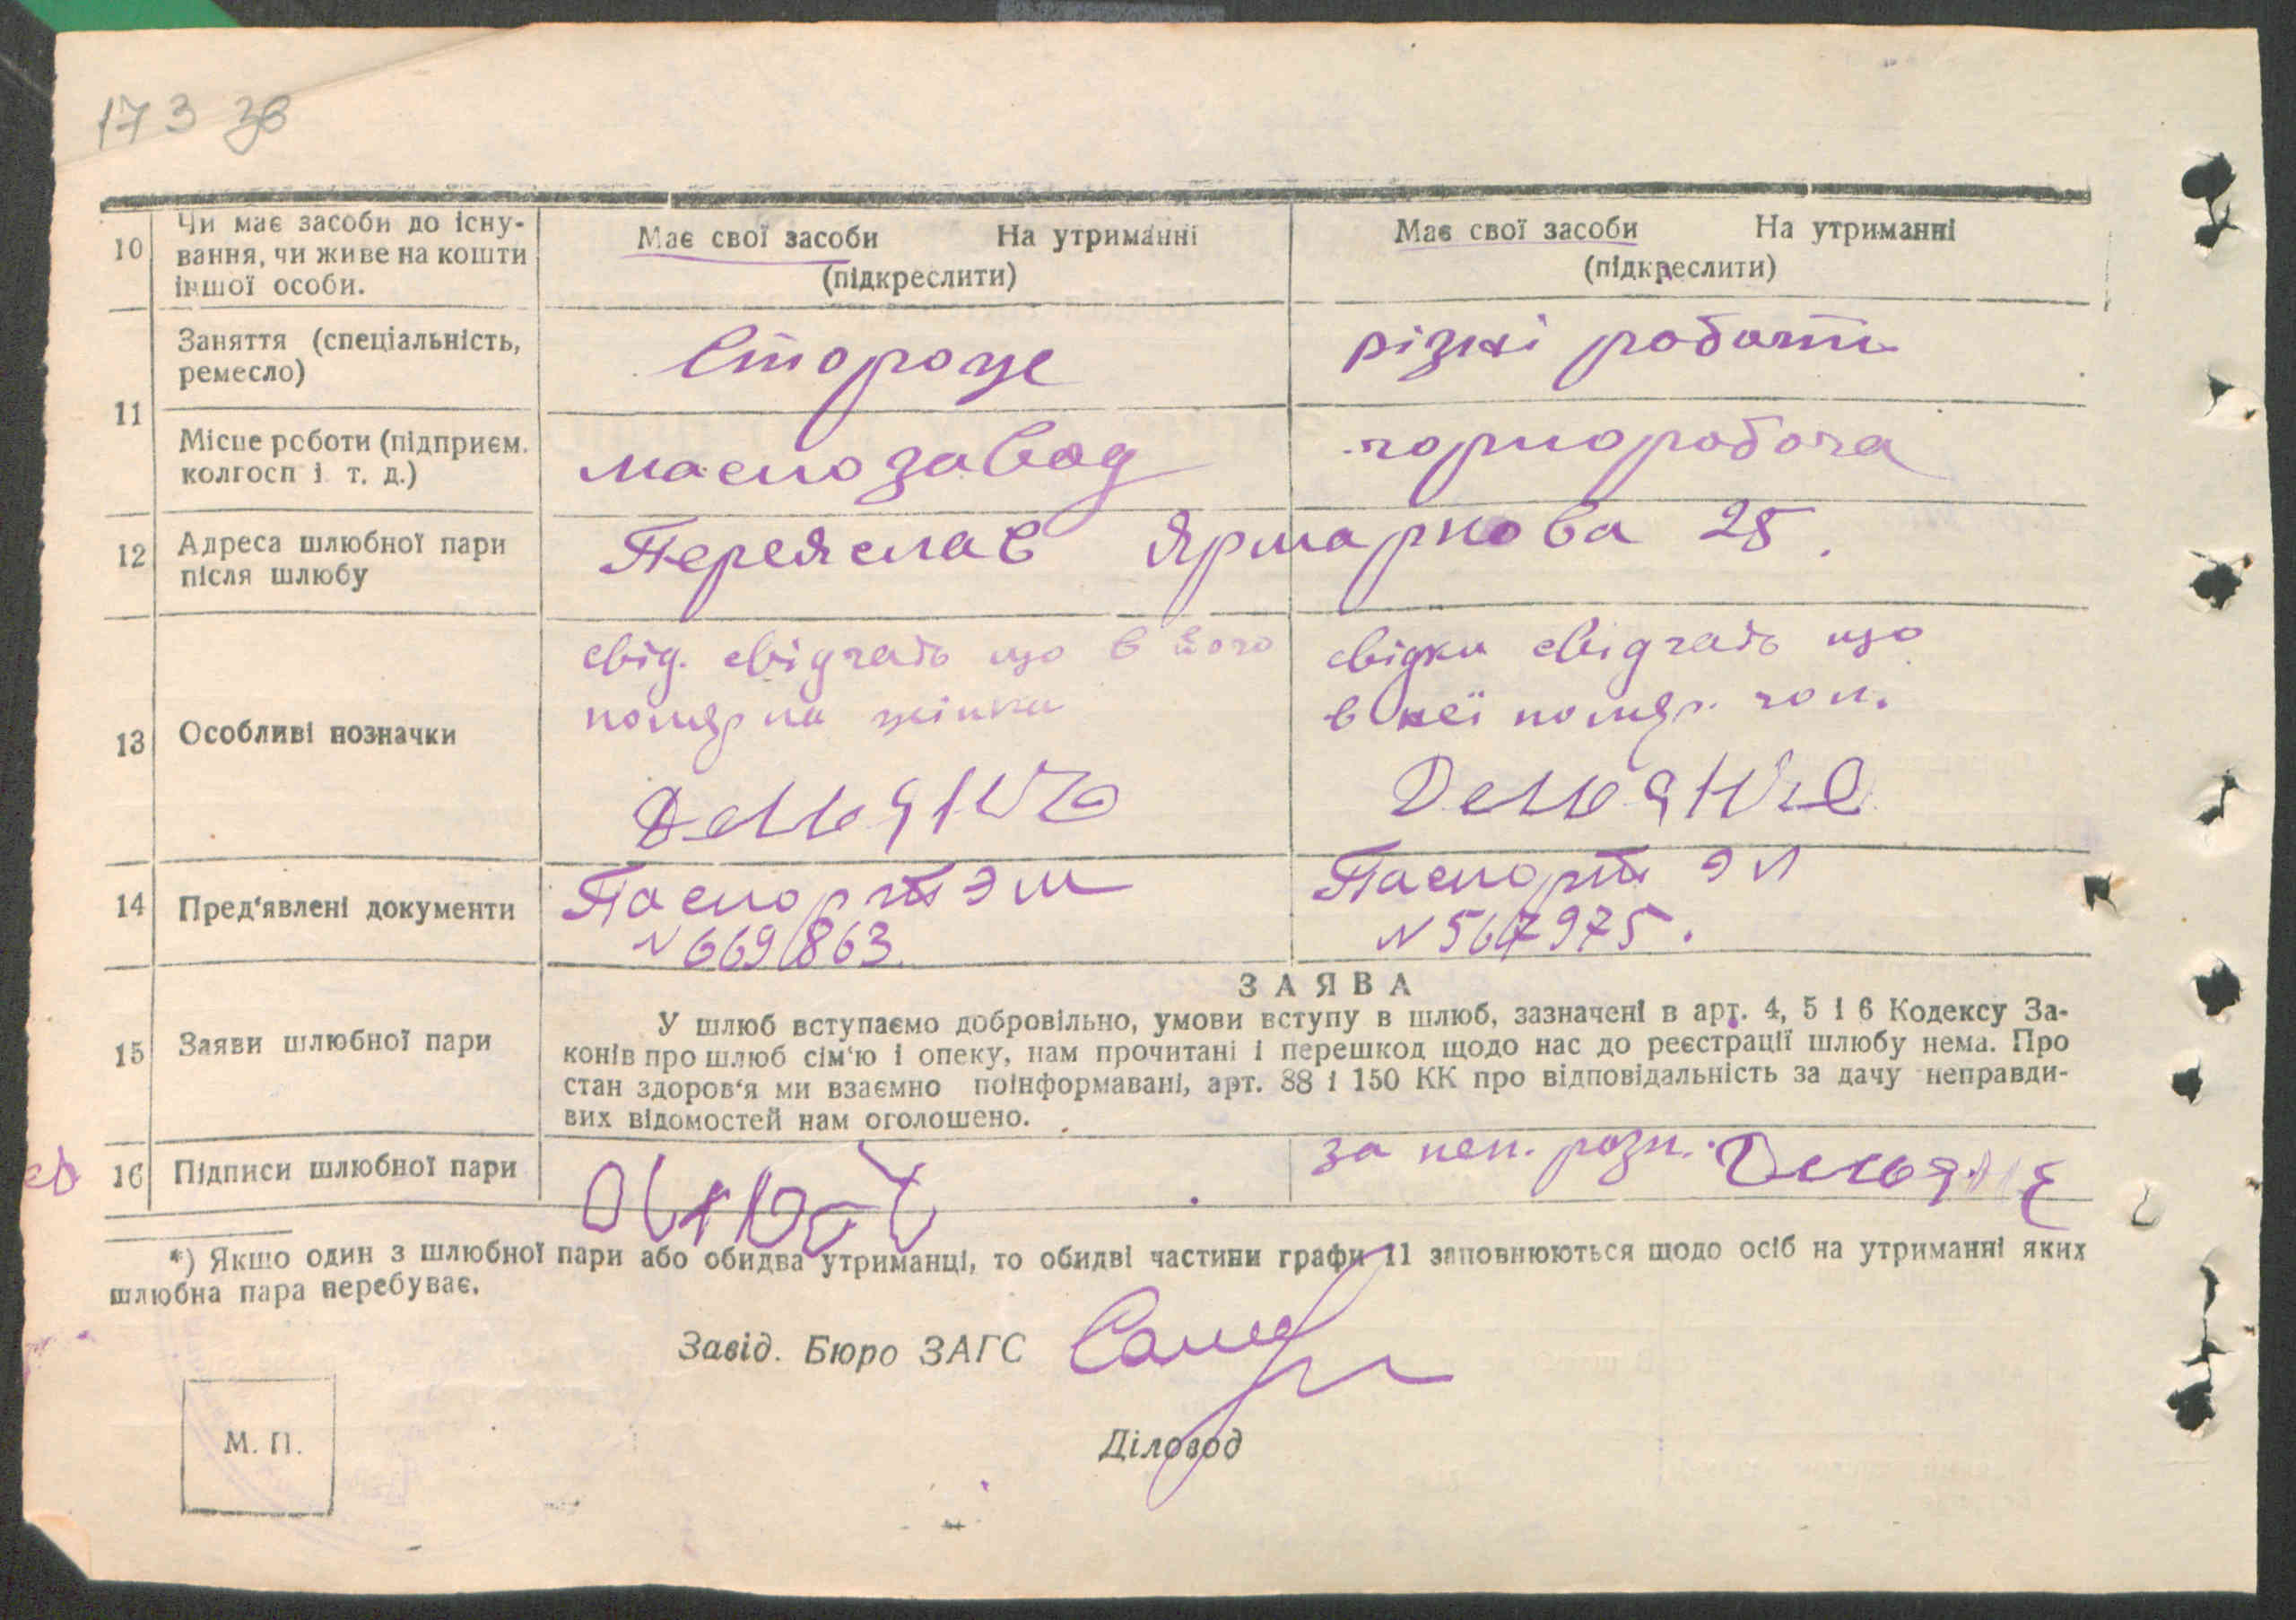 173 зв
10 Чи має засоби до існу-
вання, чи живе на кошти
іншої особи.
Має свої засоби На утриманні
(підкреслити)
Має свої засоби На утриманні
(підкреслити)
11
Заняття (спеціальність,
ремесло)
Сторож
різні роботи
Місце роботи (підприєм.
колгосп і т. д.)
маслозавод
чорноробоча
12 Адреса шлюбної пари
після шлюбу
Переяслав Ярмаркова 25.
13 Особливі позначки
свід. свідчать що в його
помэрла жінка
свідки свідчать що
в неї помэр. чол.
14 Пред'явлені документи
Паспорт ЭШ
N 669863.
Паспорт ЭЛ
N 567975.
15 Заяви шлюбної пари
ЗАЯВА
У шлюб вступаємо добровільно, умови вступу в шлюб, зазначені в арт. 4, 5 і 6 Кодексу За-
конів про шлюб сім'ю і опеку, нам прочитані і перешкод щодо нас до реєстрації шлюбу нема. Про
стан здоров'я ми взаємно поінформавані, арт. 88 і 150 КК про відповідальність за дачу неправди-
вих відомостей нам оголошено.
16 Підписи шлюбної пари
за неп. розп.
*) Якшо один з шлюбної пари або обидва утриманці, то обидві частини графи 11 заповнюються щодо осіб на утриманні яких
шлюбна пара перебуває.
Завід. Бюро ЗАГС
М. П.
Діловод